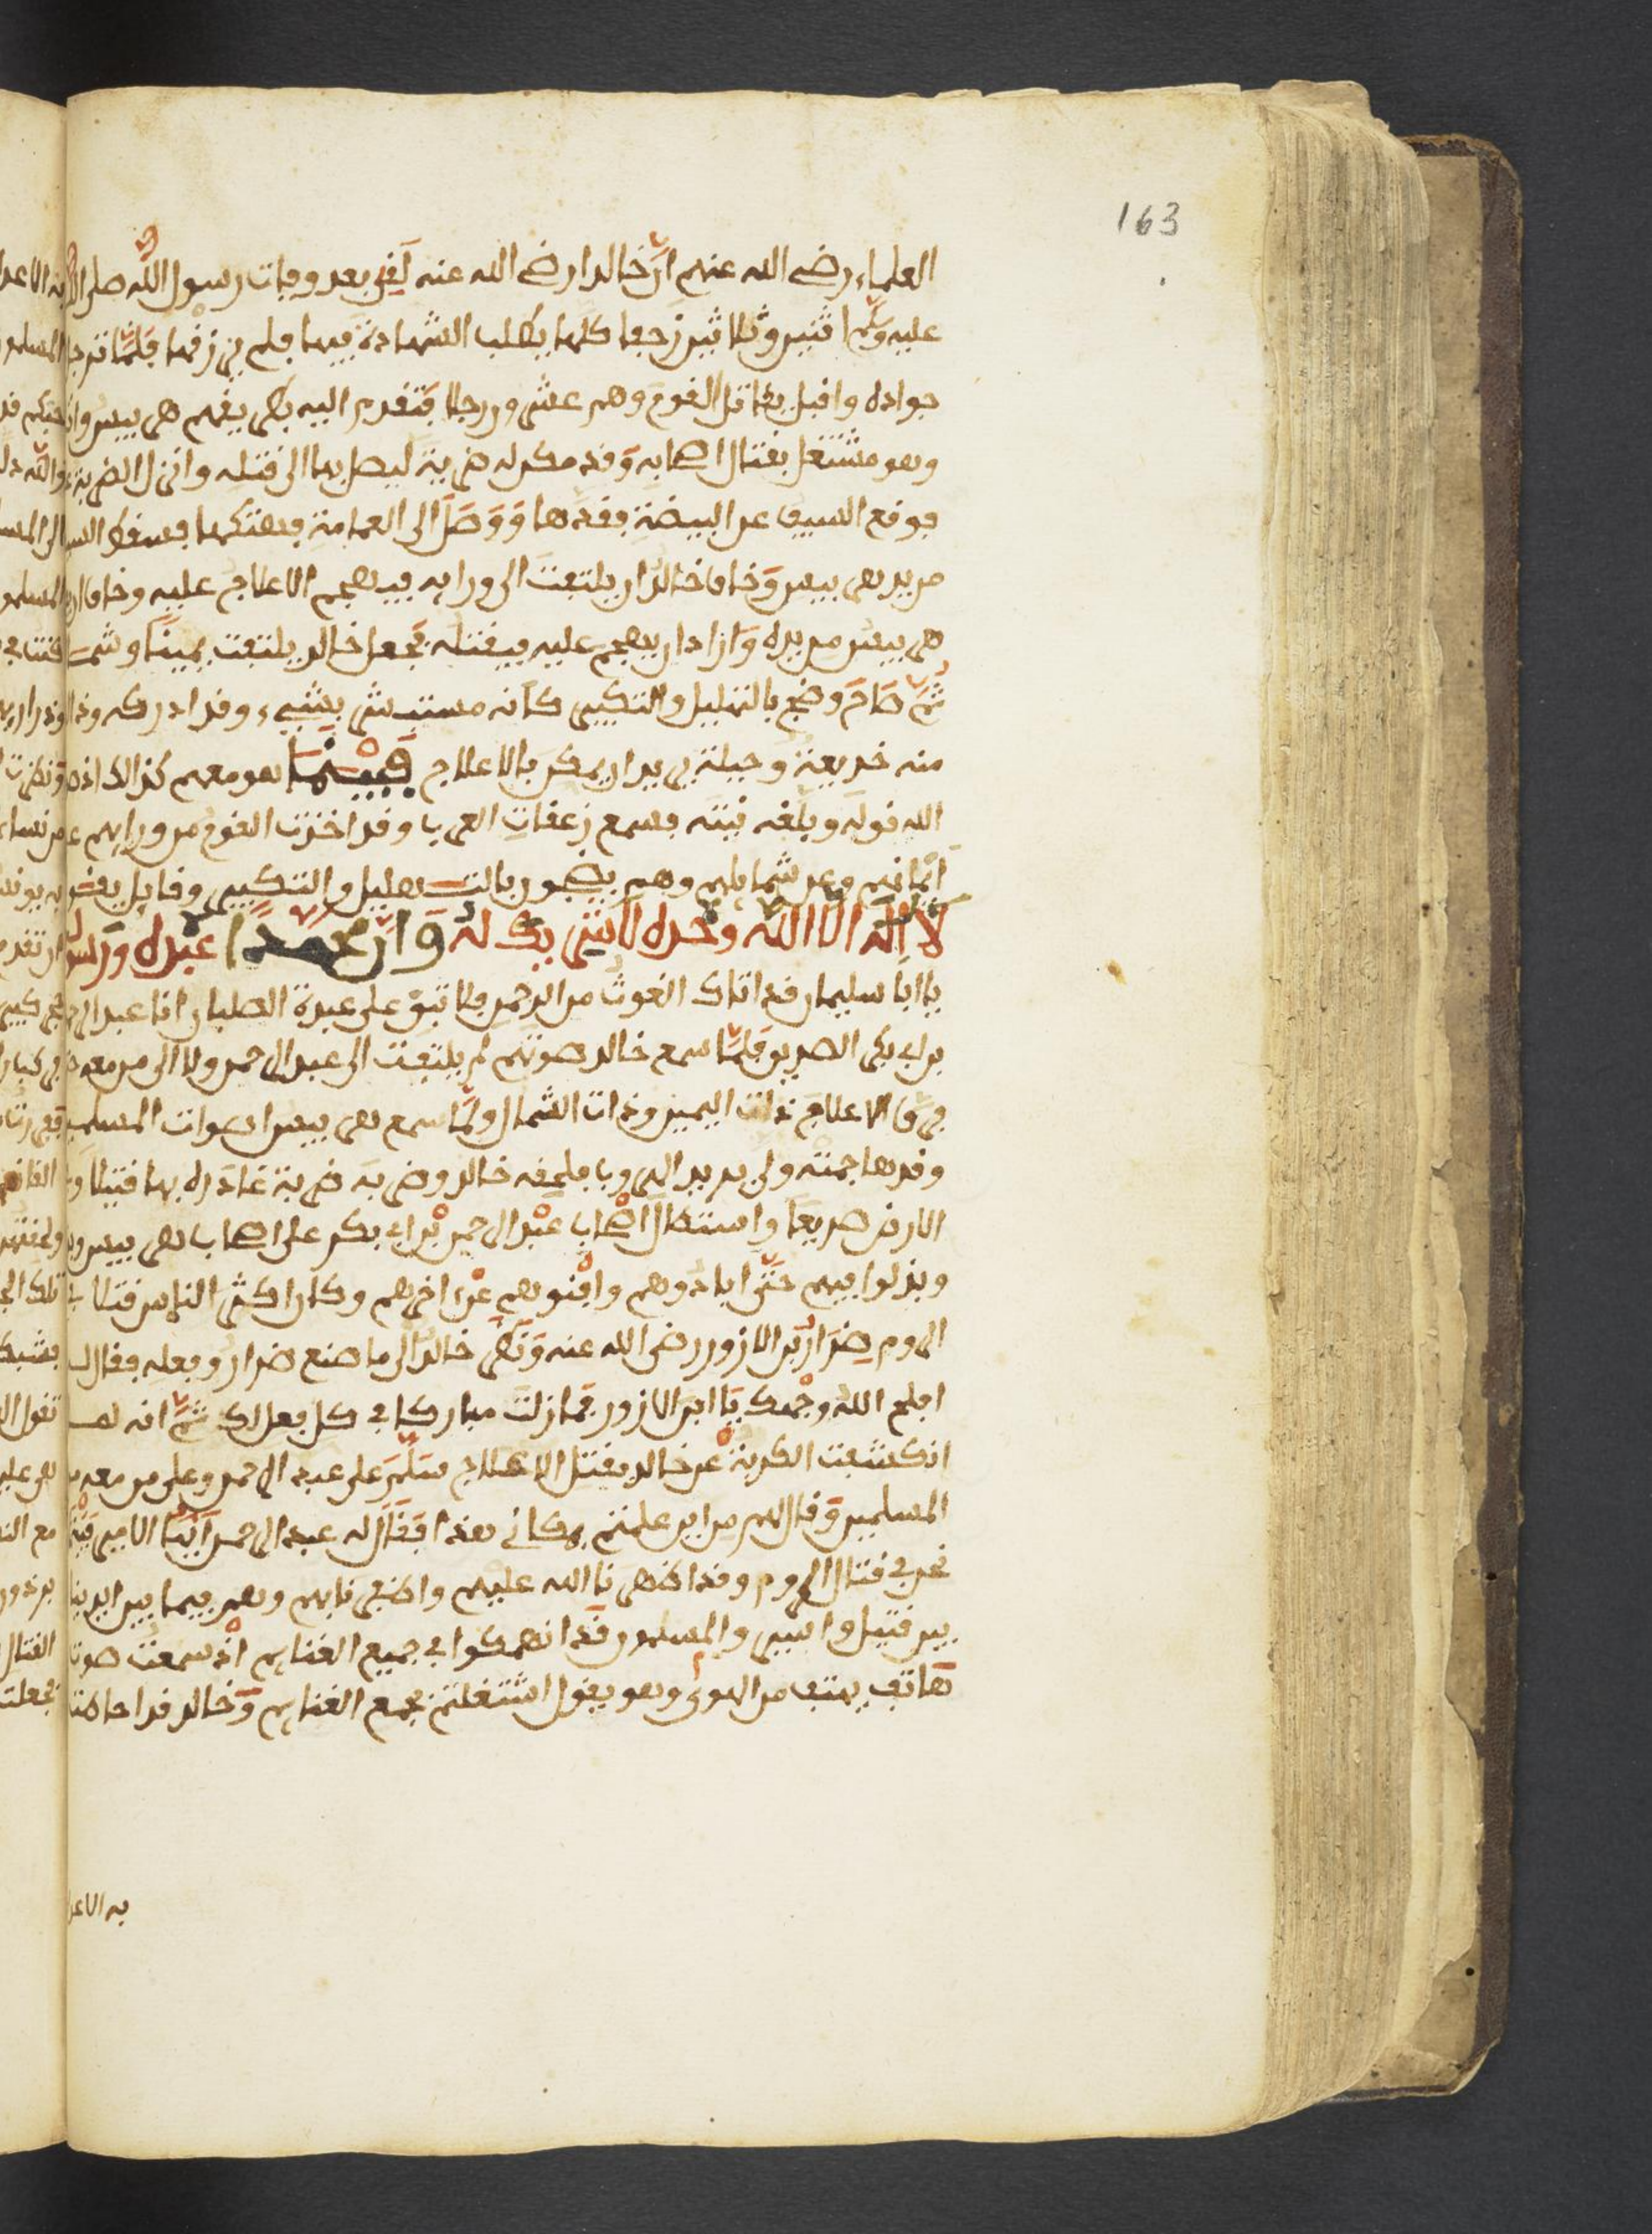 163
العلماء رضي الله عنهم ان خالدا رضي الله عنه لقي بعد وفات رسول الله صلى الله
عليه وسلم اثنين وثلاثين زحفا كلها يطلب الشهادة فيها فلم يرزقها فلما ترجل
جواده واقبل يقاتل القوم وهم عشرون رجلا فتقدم اليه بطريقهم هربيس وان
وهو مشتغل بقتال اصحابه وقد مكر له ضربة ليصل بها الى قتله وانزل الضربة
فوقع السيف على البيضة فقدها ووصل الى العمامة فهتكها فسقط السيف
من يد هربيس وخاف خالد ان يلتفت الى ورايه فيهجم الاعلاج عليه وخاف ان
هربيس من يده واراد ان يهجم عليه فيقتله فجعل خالد يلتفت يمينا وشمالا
ثم صاح وضج بالتهليل والتكبير كانه مستبشر بشيء وقد ادركه وذالك
منه خديعة وحيلة يريد ان يمكر بالاعلاج فبينما هو معهم كذالك اذ
الله قوله وبلغه نيته فسمع زعقات العرب وقد اخذت القوم من ورايهم
ايمانهم وعن شمايلهم وهم يضجون بالتهليل والتكبير وقايل يقول
لا اله الا الله وحده لا شريك له وان محمدا عبده ورسوله
يا ابا سليمان قد اتاك الغوث من الرحمن فلا تبق على عبدة الصلبان انا عبد الرحمن
بن ابي بكر الصديق فلما سمع خالد صوتهم لم يلتفت الى عبد الرحمن ولا الى من معه
فرق الاعلاج ذات اليمين وذات الشمال ولما سمع هربيس اصوات المسلمين
وقد هاجمته ولى يريد الهروب فلحقه خالد وضربه ضربة غادره بها قتيلا
الارض صريعا واستطال اصحاب عبد الرحمن بن ابي بكر على اصحاب هربيس
وبذلوا فيهم حتى ابادوهم وافنوهم عن اخرهم وكان اكثر الناس قتلا في
الروم ضرار بن الازور رضي الله عنه ونظر خالد الى ما صنع ضرار وفعله فقال
افلح الله وجهك يا ابن الازور فما زلت مباركا في كل فعلك ثم انه لما
انكشفت الكربة عن خالد بقتل الاعلاج سلم على عبد الرحمن وعلى من معه من
المسلمين وقال لهم من اين علمتم بمكاني هذا فقال له عبد الرحمن ايها الامير بينما
نحن في قتال الروم وقد اظهرنا الله عليهم واظفرنا بهم وهم فيما بين ايدينا
بين قتيل واسير والمسلمون قد انهمكوا في جميع الغنايم اذ سمعت صوت
هاتف يهتف من الهوى وهو يقول اشتغلتم بجمع الغنايم وخالد قد احاطت
به الاعدا